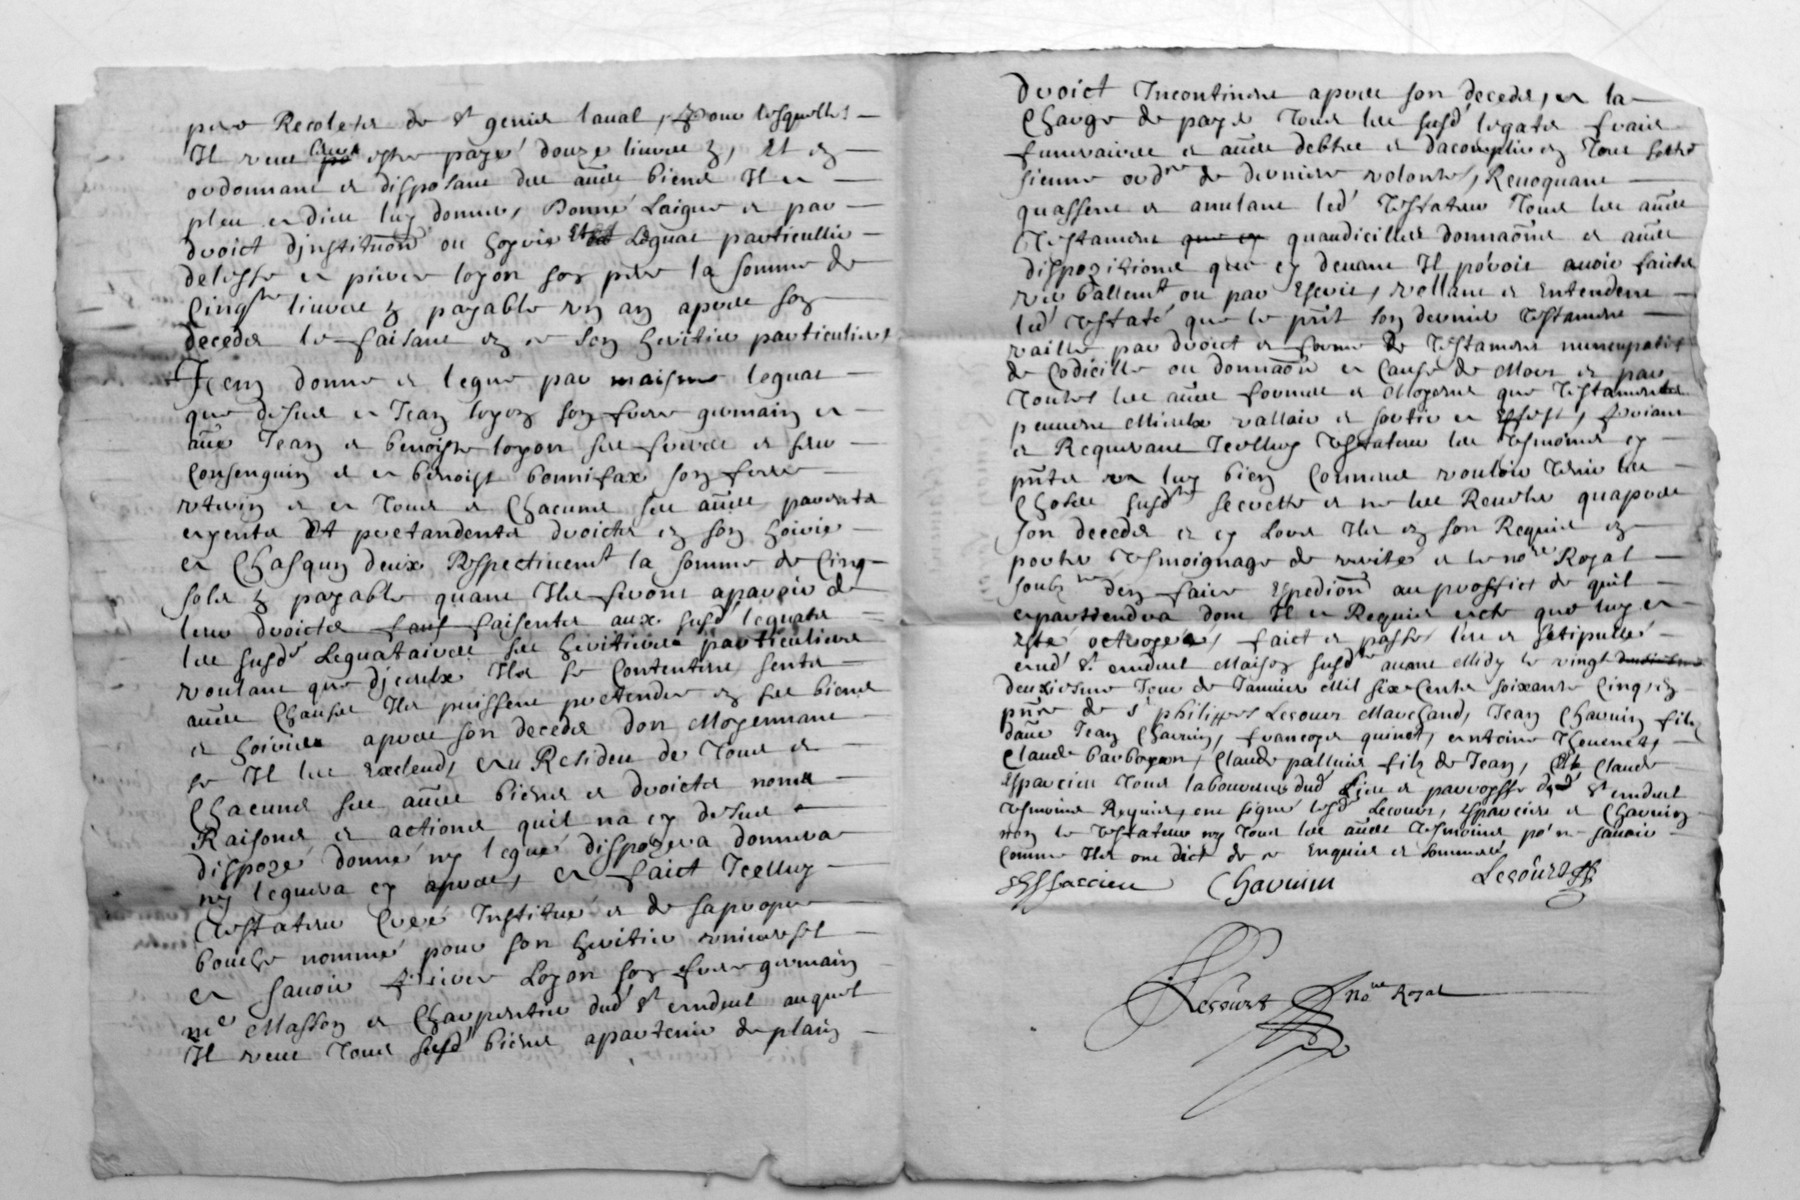 pere Recoletz de st genis laual, pour lesquelles
Il veut estre payé douze liures z, Et en
ordonnant et disposant des aues biens Il a
pleu a dieu luy donner, Donne Laigue et par
droict djnstituon ou hoyrie Leguat particullier
delesse a pierre loyon son pere la somme de
Cinqte liures z payable vng an apres son
deceds le faisant en ce son heritier particulier,
Item donne et legue par maisme leguat
que dessus a Jean loyon son frere germain a
aue Jean et benoiste loyon ses freres et seur
Consenguin et a benoist bonnifax son frere
vterin et a tous et Chacuns ses aues parents
a Chasqun deux Respectiuemt la somme de Cinq
solz z payable quant Ilz feront aparoir de
leur droictz faisents aux susds leguatz
les susds Leguataires ses heritiers particuliers
voulant que djceulx Ilz se Contentent sents
aues Chause Ilz puissent pretendre en ses biens
et hoirie apres son deceds don Moyennant
ce Il les Exclend, Au Resideu de tous et
Chacuns ses aues biens et droictz noms
Raisons et actions quil na cy dessus
dispozé donné ny legué dispozera donnera
ny leguera cy apres, a faict Icelluy
testateur Creé Institué et de sa propre
bouche nommé pour son heritier vniuersel
a sauoir pierre Loyon son frere germain
me Masson et Charpentier dud st andeul auquel
Il veut tous susds biens apartenir de plain
droict Incontinent apres son deceds, a la
Charge de payer tous les susds legatz frais
funeraires et aues debtes et dacomplir en tout ceste
sienne ordre de derniere volonté, Reuoquant
quassent et anulant led testateur tous les aues
testament quaudicilles donnaons et aues
dispozitions que cy deuant Il pouoit auoir faictz
verballemt ou par Escrit, vollant et Entendent
led testaté que le pnt son dernier testament
vaille par droict et forme de testament nuncupatif
de Codicille ou donnaon a Cause de Mort et par
toutes les aues formes et Moyens que testaments
peuuent Mieulx vallair et sortir a Effest, priant
et Requerant Icelluy testateur les tesmoins cy
pntz a luy bien Connus vouloir tenir les
Choses susdtes secrette et ne les Reueler quapres
son deceds et cy Lors Ilz en son Requis en
porter tesmoignage de verité et le nore Royal
soubzne den faire Expedion au proffict de quil
apartiendra dont Il a Requis acte que luy a
esté octroyé, faict et passé leu et stipullé
aud st andeul Maison susdte auant Midy le vingt
deuxiesme Jour de Januier Mil six Cents soixante Cinq, en
pnce de sr philippes Lecourt Marchand, Jean Chauuin filz
daue Jean Chauuin, francoys quinet, antoine thouenet,
Claude barberon, Claude palluis filz de Jean, Et Claude
esparcieu tous laboureurs dud Lieu et parroisse dud st andeul
tesmoins Requis, ont signé lesds Lecourt, esparcieu et Chauuin
non le testateur ny tous les aues tesmoins pour ne sauoir
Comme Ilz ont dict de ce Enquis et sommés
Chauuin Lecourt
Lecourt nore Royal